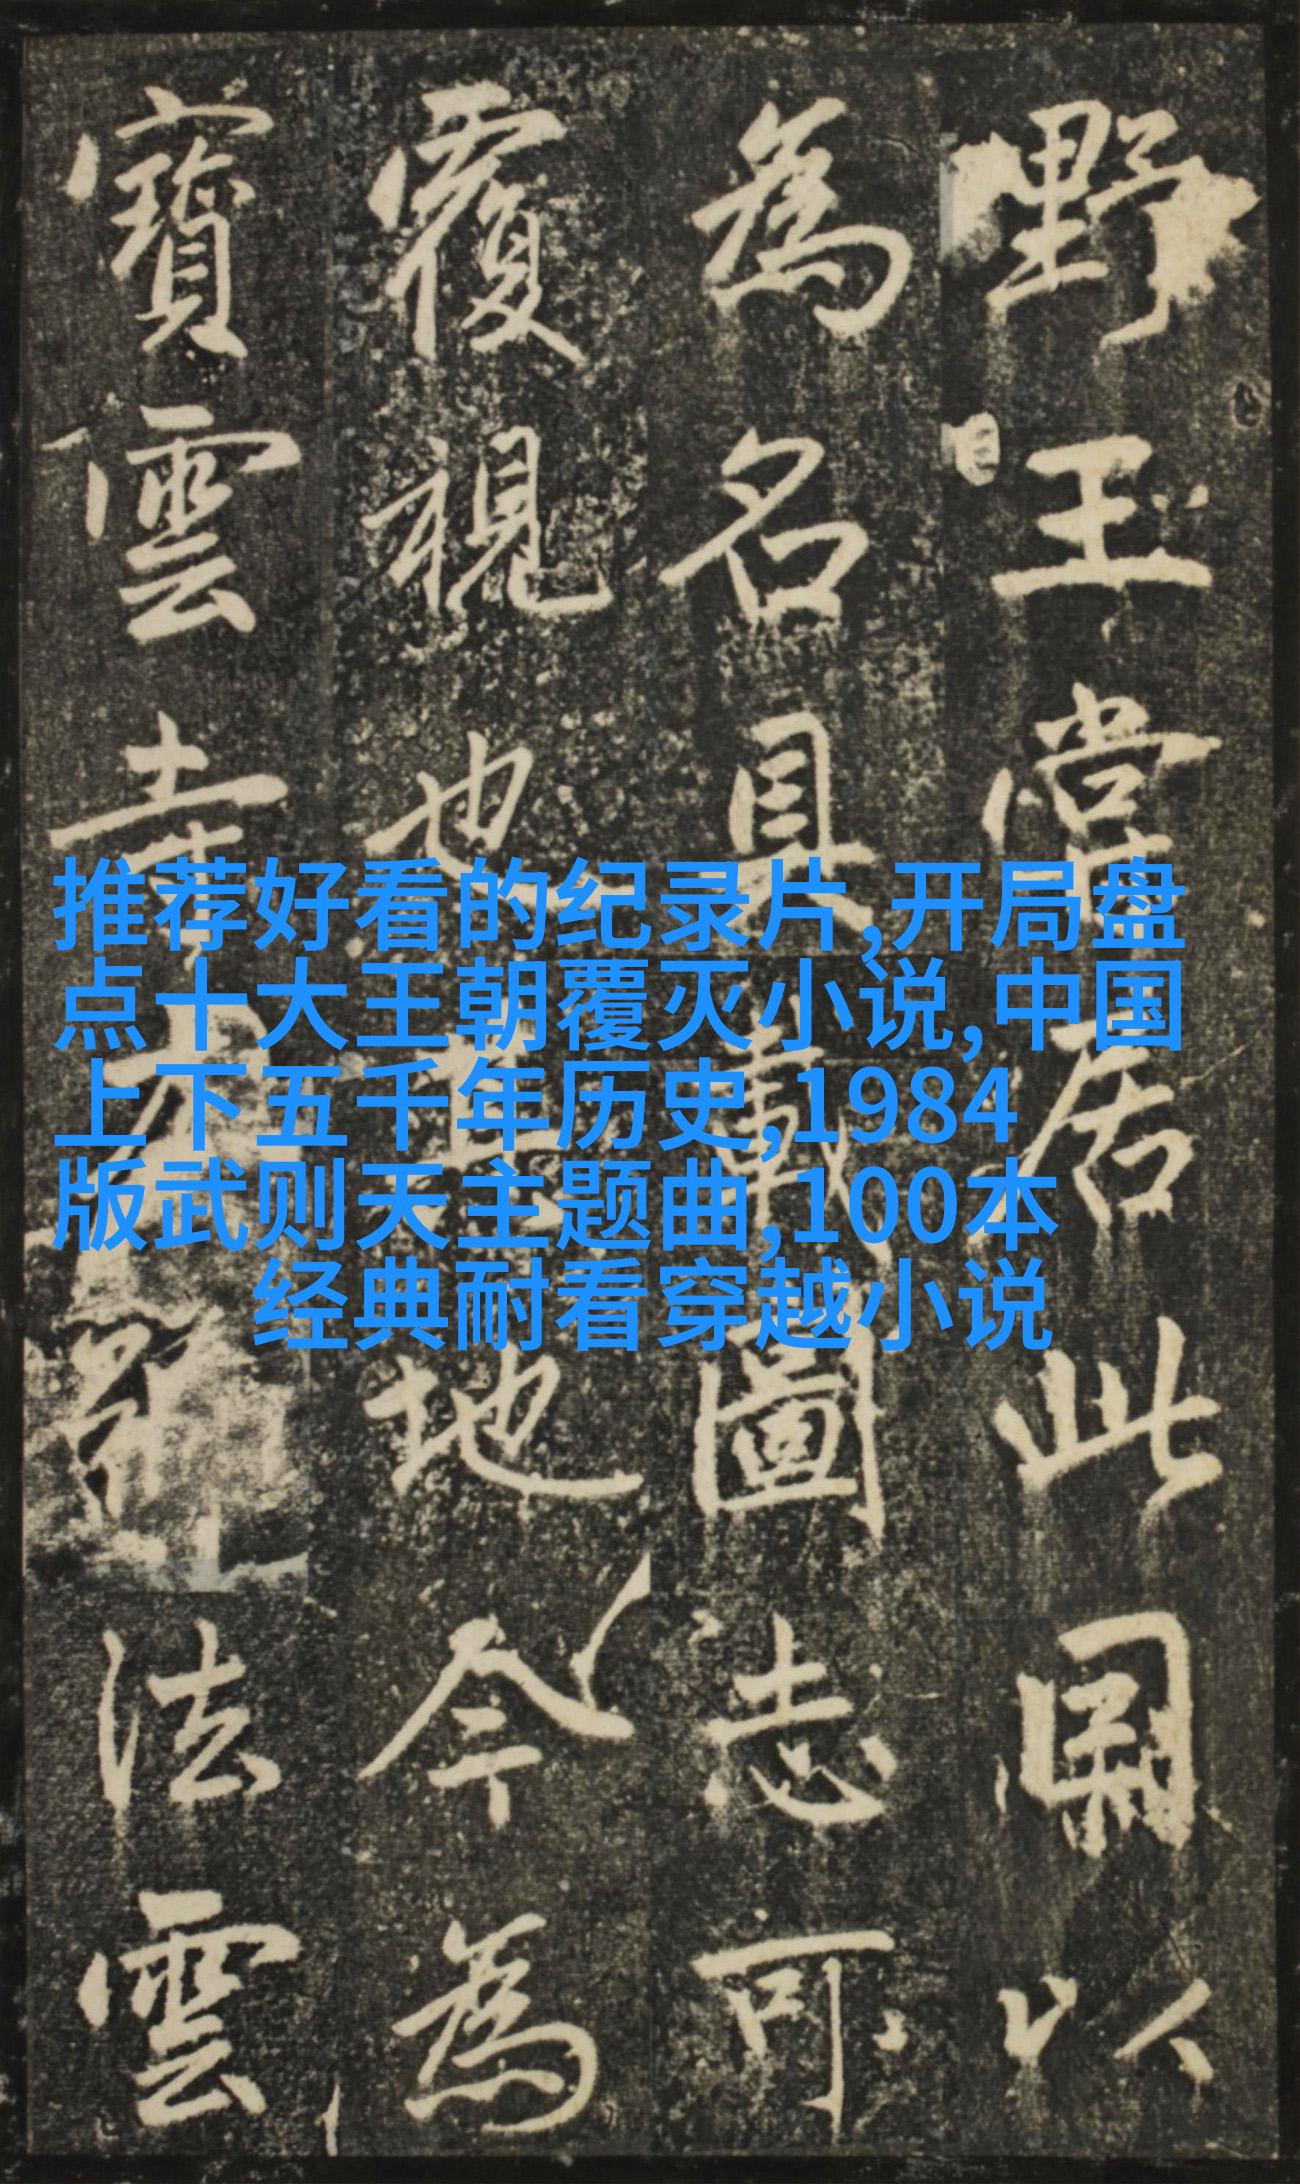 野王當居此圖以
為名具載圖志可
覆視也其地今為
寶雲寺
法雲
推荐好看的纪录片,开局盘
点十大王朝覆灭小说,中国
上下五千年历史,1984
版武则天主题曲,100本
经典耐看穿越小说